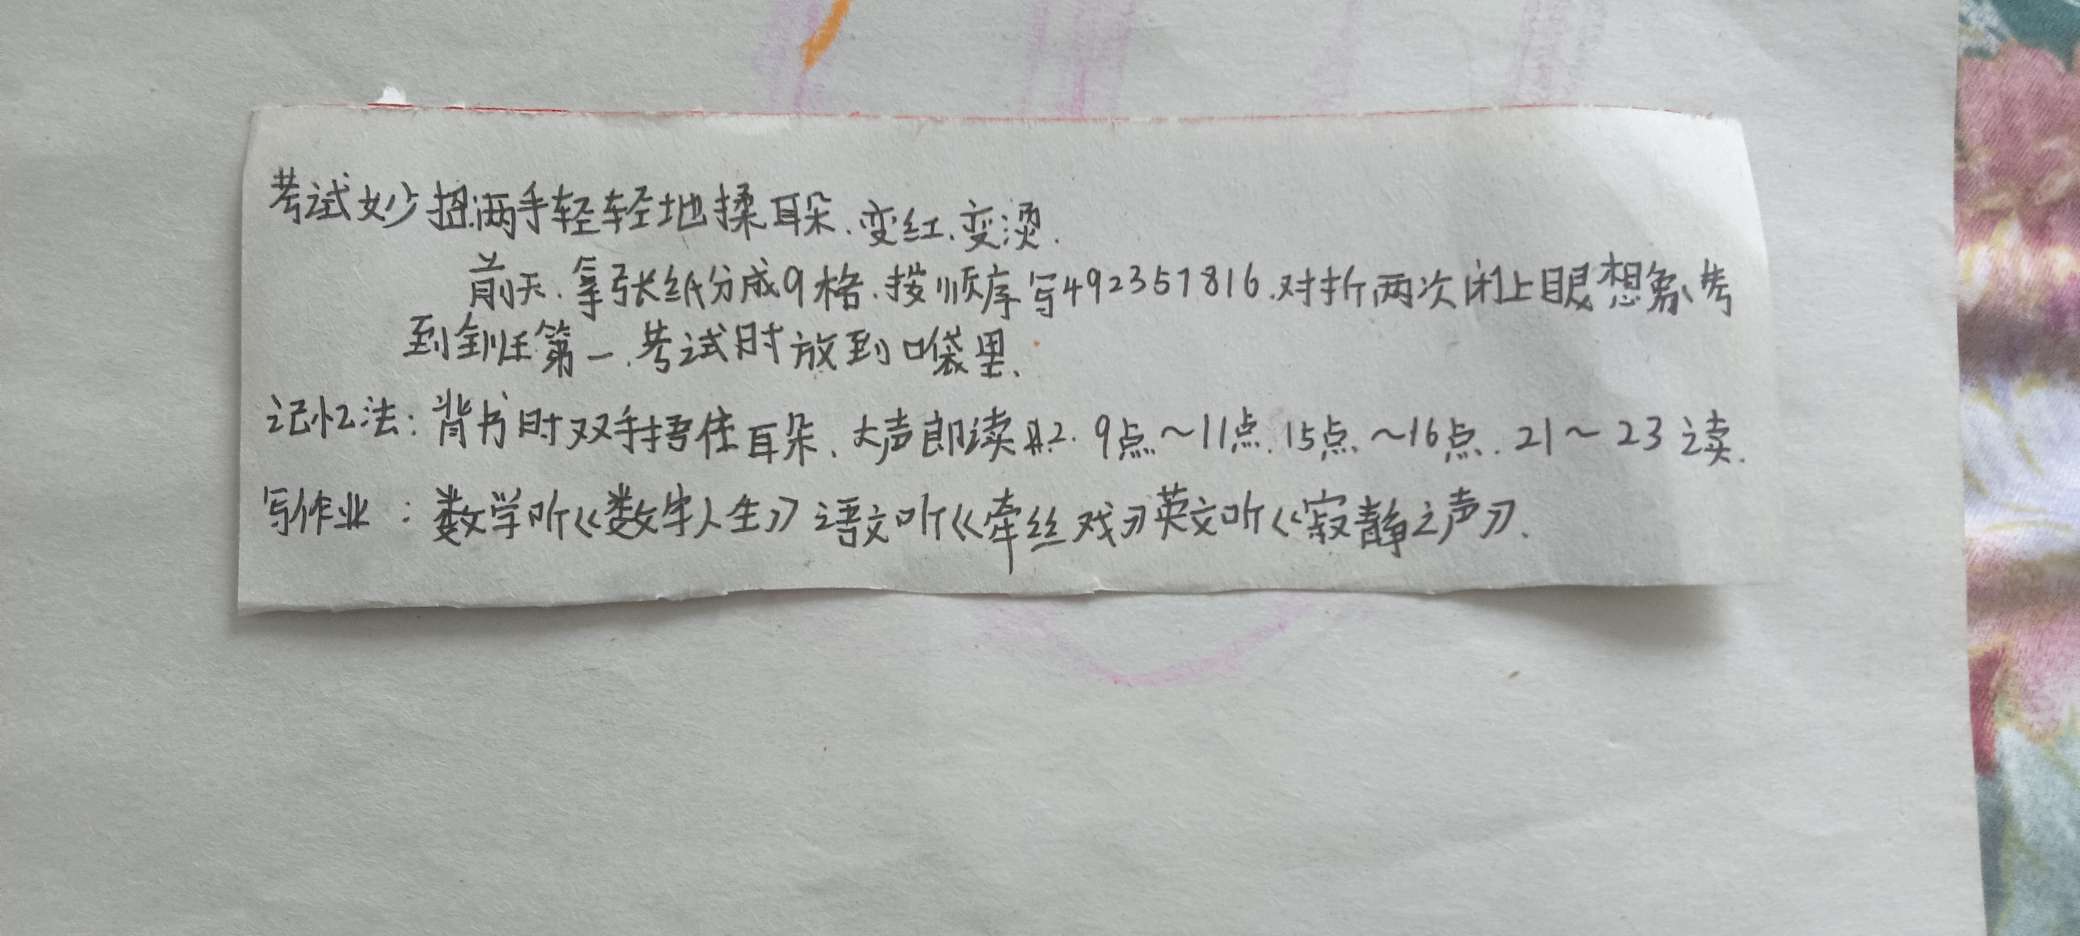 考试妙招:两手轻轻地揉耳朵.变红.变烫.
前天.拿张纸分成9格.按顺序写492357816.对折两次闭上眼想象考
到全班第一.考试时放到口袋里.
记忆法:背书时双手捂住耳朵.大声朗读 9点~11点.15点~16点.21~23读.
写作业:数学听《数字人生》语文听《牵丝戏》英文听《寂静之声》.